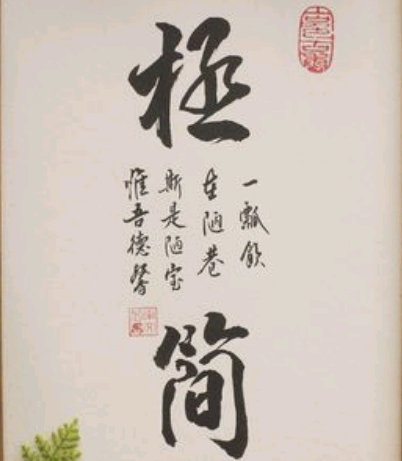 極
簡
一瓢飲
在陋巷
斯是陋室
惟吾德馨